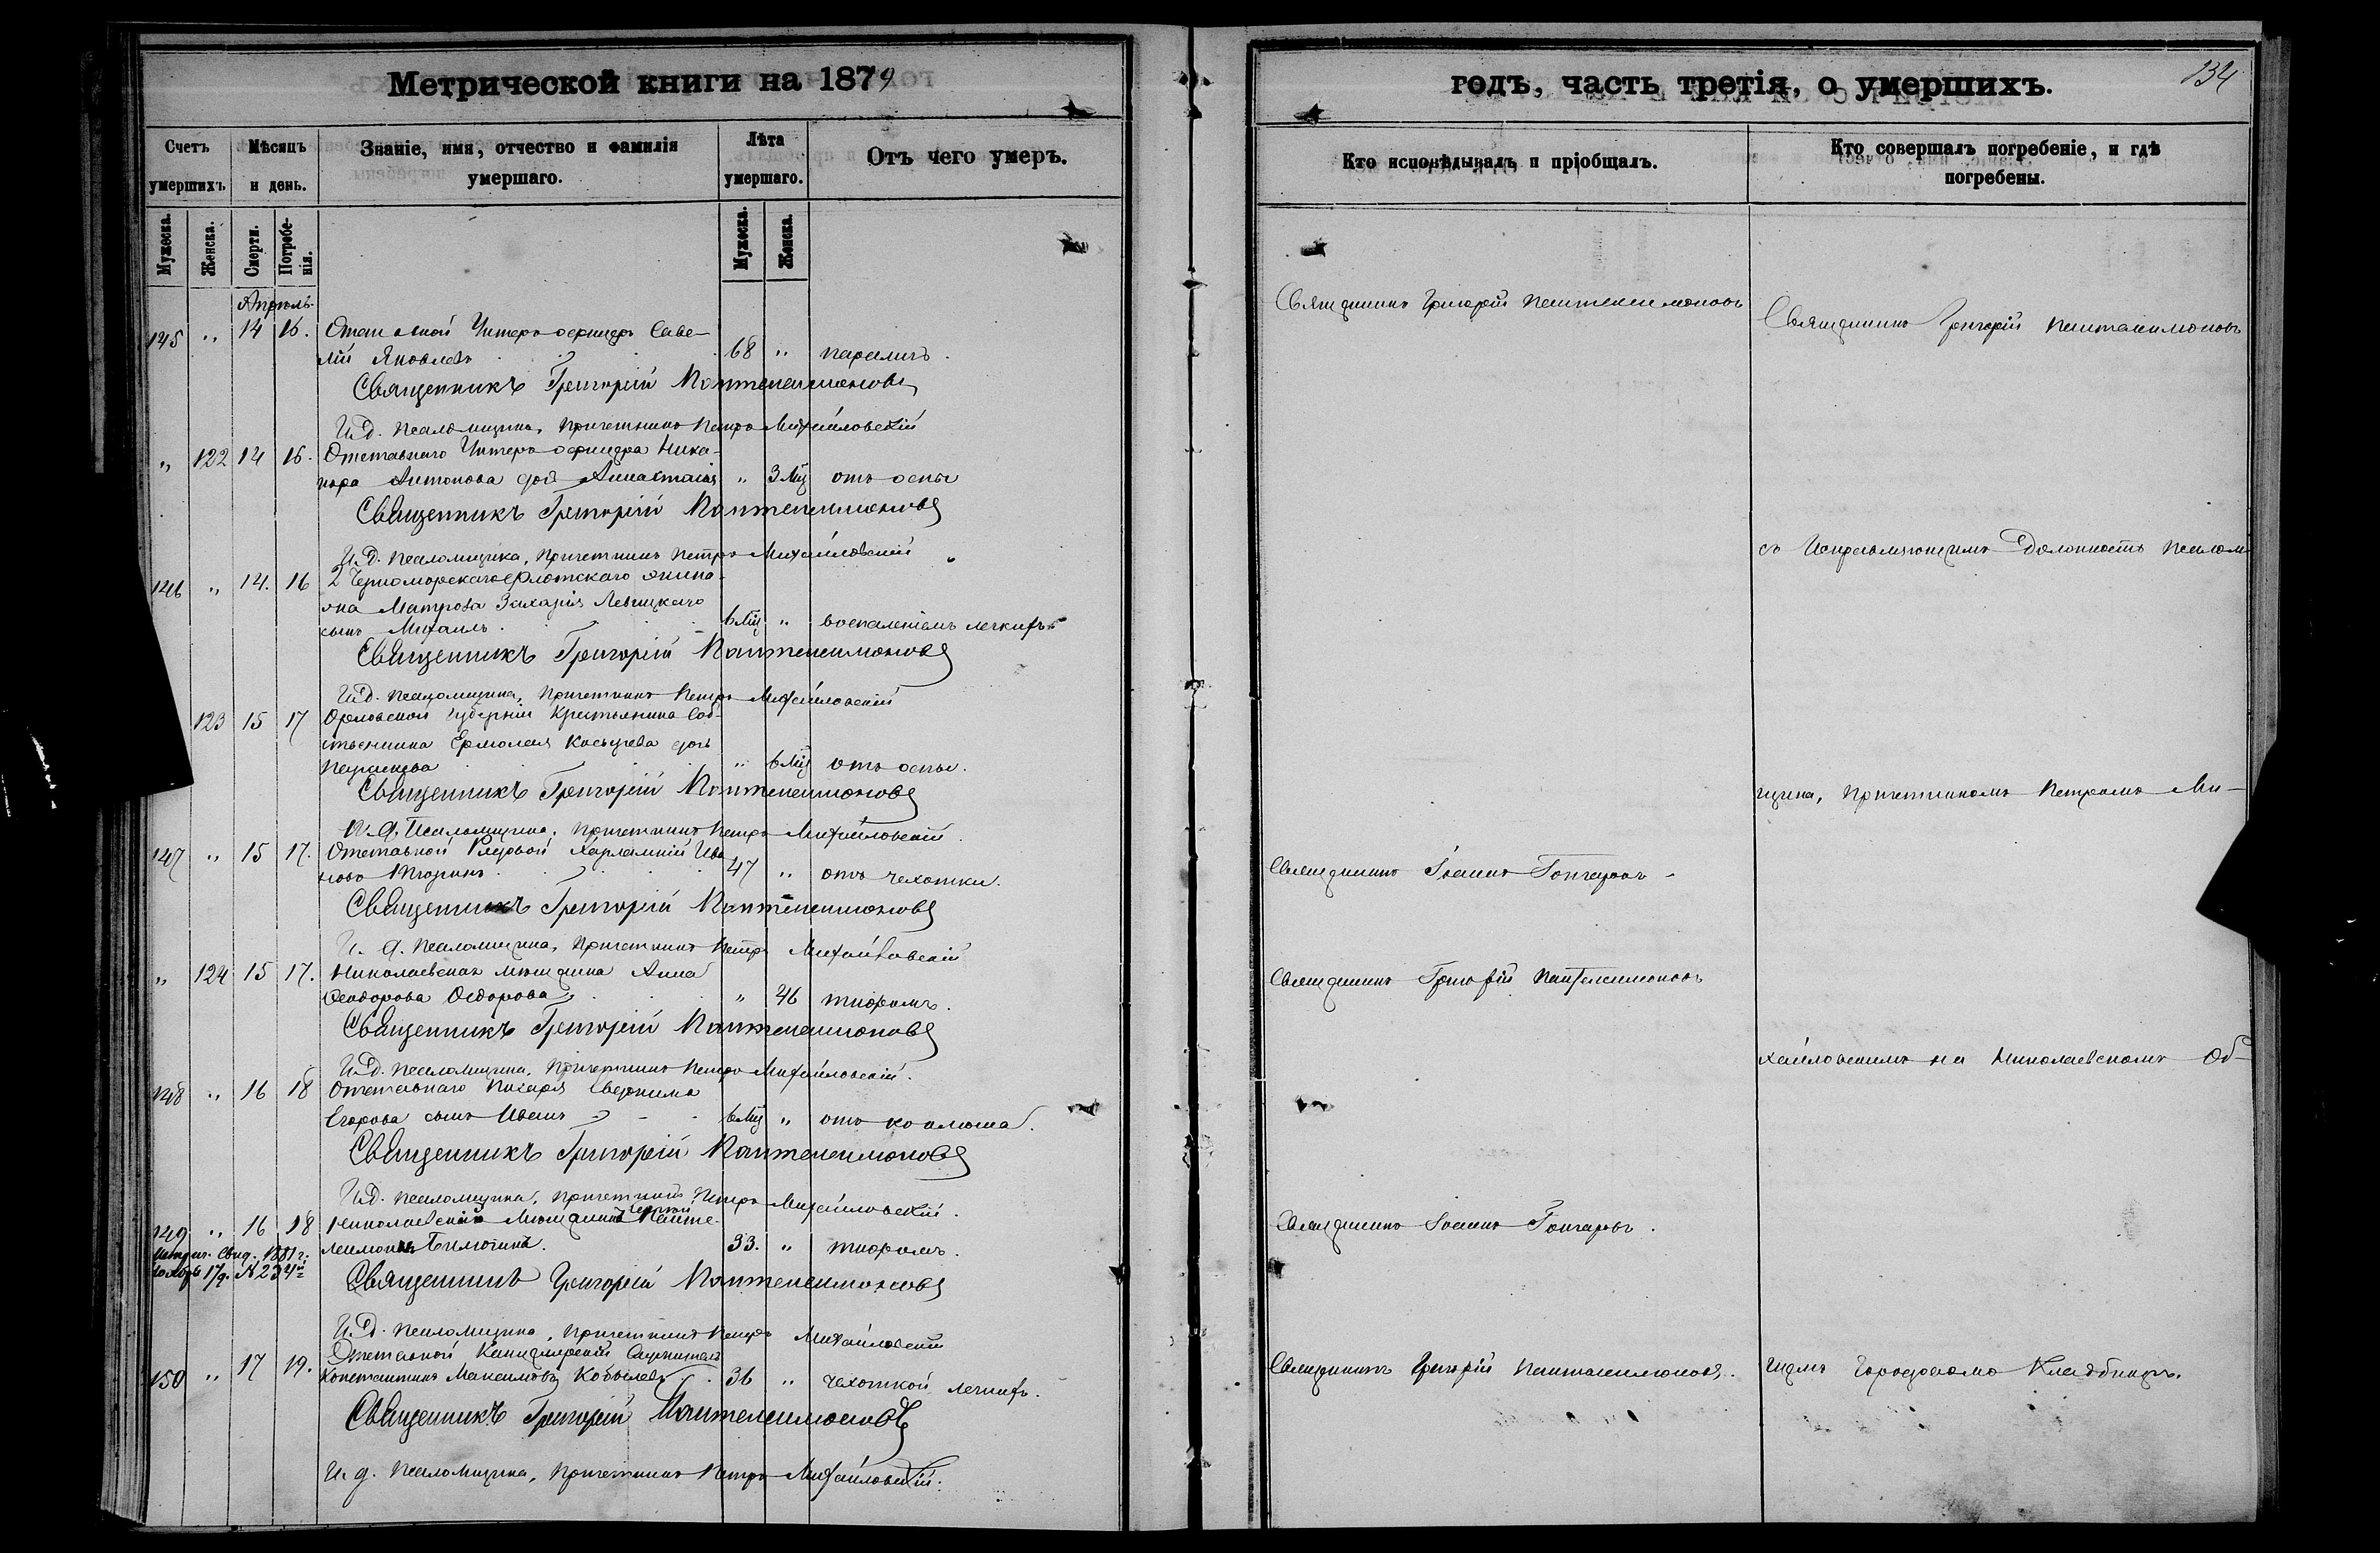 Метрической книги на 1879
Счетъ умершихъ.
Мѣсяцъ и день.
Званіе, имя, отчество и фамилія умершаго.
Лѣта умершаго.
Отъ чего умеръ.
Мужеска. Женска. Смерти. Погребенія. Мужеска. Женска.
Апрѣль
145 " 14 16. Отставной Унтеръ-офицеръ Саве-
лій Яковлевъ 68 " параличъ.
Священникъ Григорій Пантелеимоновъ
И.д. псаломщика, Причетникъ Петръ Михайловскій
" 122 14 16. Отставнаго Унтеръ-офицера Ника-
нора Антонова дочь Анастасія " 3 Мц отъ оспы
Священникъ Григорій Пантелеимоновъ
И.д. псаломщика, Причетникъ Петръ Михайловскій
146 " 14. 16 2 Черноморскаго флотскаго экипа-
жа Матроса Захарія Левицкаго
сынъ Михаилъ 6 Мц " воспаленіемъ легкихъ
Священникъ Григорій Пантелеимоновъ
И.д. псаломщика, Причетникъ Петръ Михайловскій
123 15 17 Орловской губерніи Крестьянина Соб-
ственника Ермолая дочь
" 6 Мц отъ оспы.
Священникъ Григорій Пантелеимоновъ
И.д. Псаломщика, Причетникъ Петръ Михайловскій.
147 " 15 17. Отставной Рядовой Харлампій Ива
новъ 47 " отъ чахотки.
Священникъ Григорій Пантелеимоновъ
И.д. псаломщика, Причетникъ Петръ Михайловскій
" 124 15 17. Николаевская мѣщанка Анна
Феодорова Федорова " 46 тифомъ.
Священникъ Григорій Пантелеимоновъ
И.д. псаломщика, Причетникъ Петръ Михайловскій.
148 " 16 18 Отставнаго Писаря
Егорова сынъ Иванъ 6 Мц " отъ коклюша.
Священникъ Григорій Пантелеимоновъ
И.д. псаломщика, Причетникъ Петръ Михайловскій.
149 " 16 18 Николаевскій Мѣщанинъ Панте-
леимонъ 33. " тифомъ.
Метрич. Свид. 1881 г.
17 д. № 234
Священникъ Григорій Пантелеимоновъ
И.д. псаломщика, Причетникъ Петръ Михайловскій
150 " 17 19. Отставной Канцелярскій Служитель
Константинъ Максимовъ Кобылевъ 36 " чахоткой легкихъ.
Священникъ Григорій Пантелеимоновъ
И.д. псаломщика, Причетникъ Петръ Михайловскій.
годъ, часть третія, о умершихъ.
134
Кто исповѣдывалъ и пріобщалъ.
Кто совершалъ погребеніе, и гдѣ погребены.
Священникъ Григорій Пантелеимоновъ
Священникъ Іоаннъ Гончаровъ
Священникъ Григорій Пантелеимоновъ
Священникъ Іоаннъ Гончаровъ.
Священникъ Григорій Пантелеимоновъ.
Священникъ Григорій Пантелеимоновъ
съ Исправляющимъ Должность псалом-
щика, Причетникомъ Петромъ Ми-
хайловскимъ на Николаевскомъ Об-
щемъ Городскомъ Кладбищѣ.